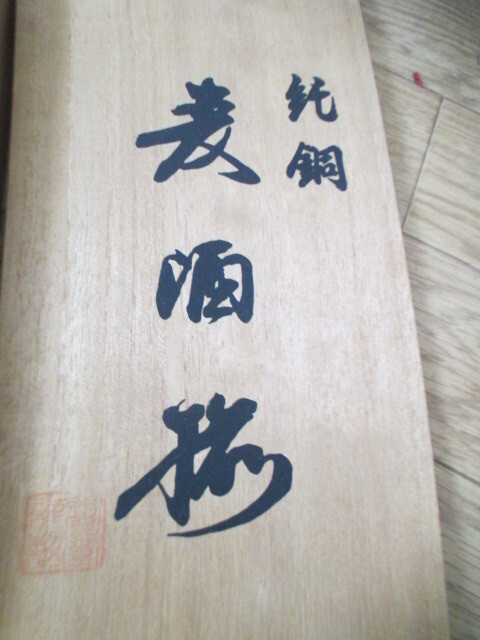 純銅
麦酒揃